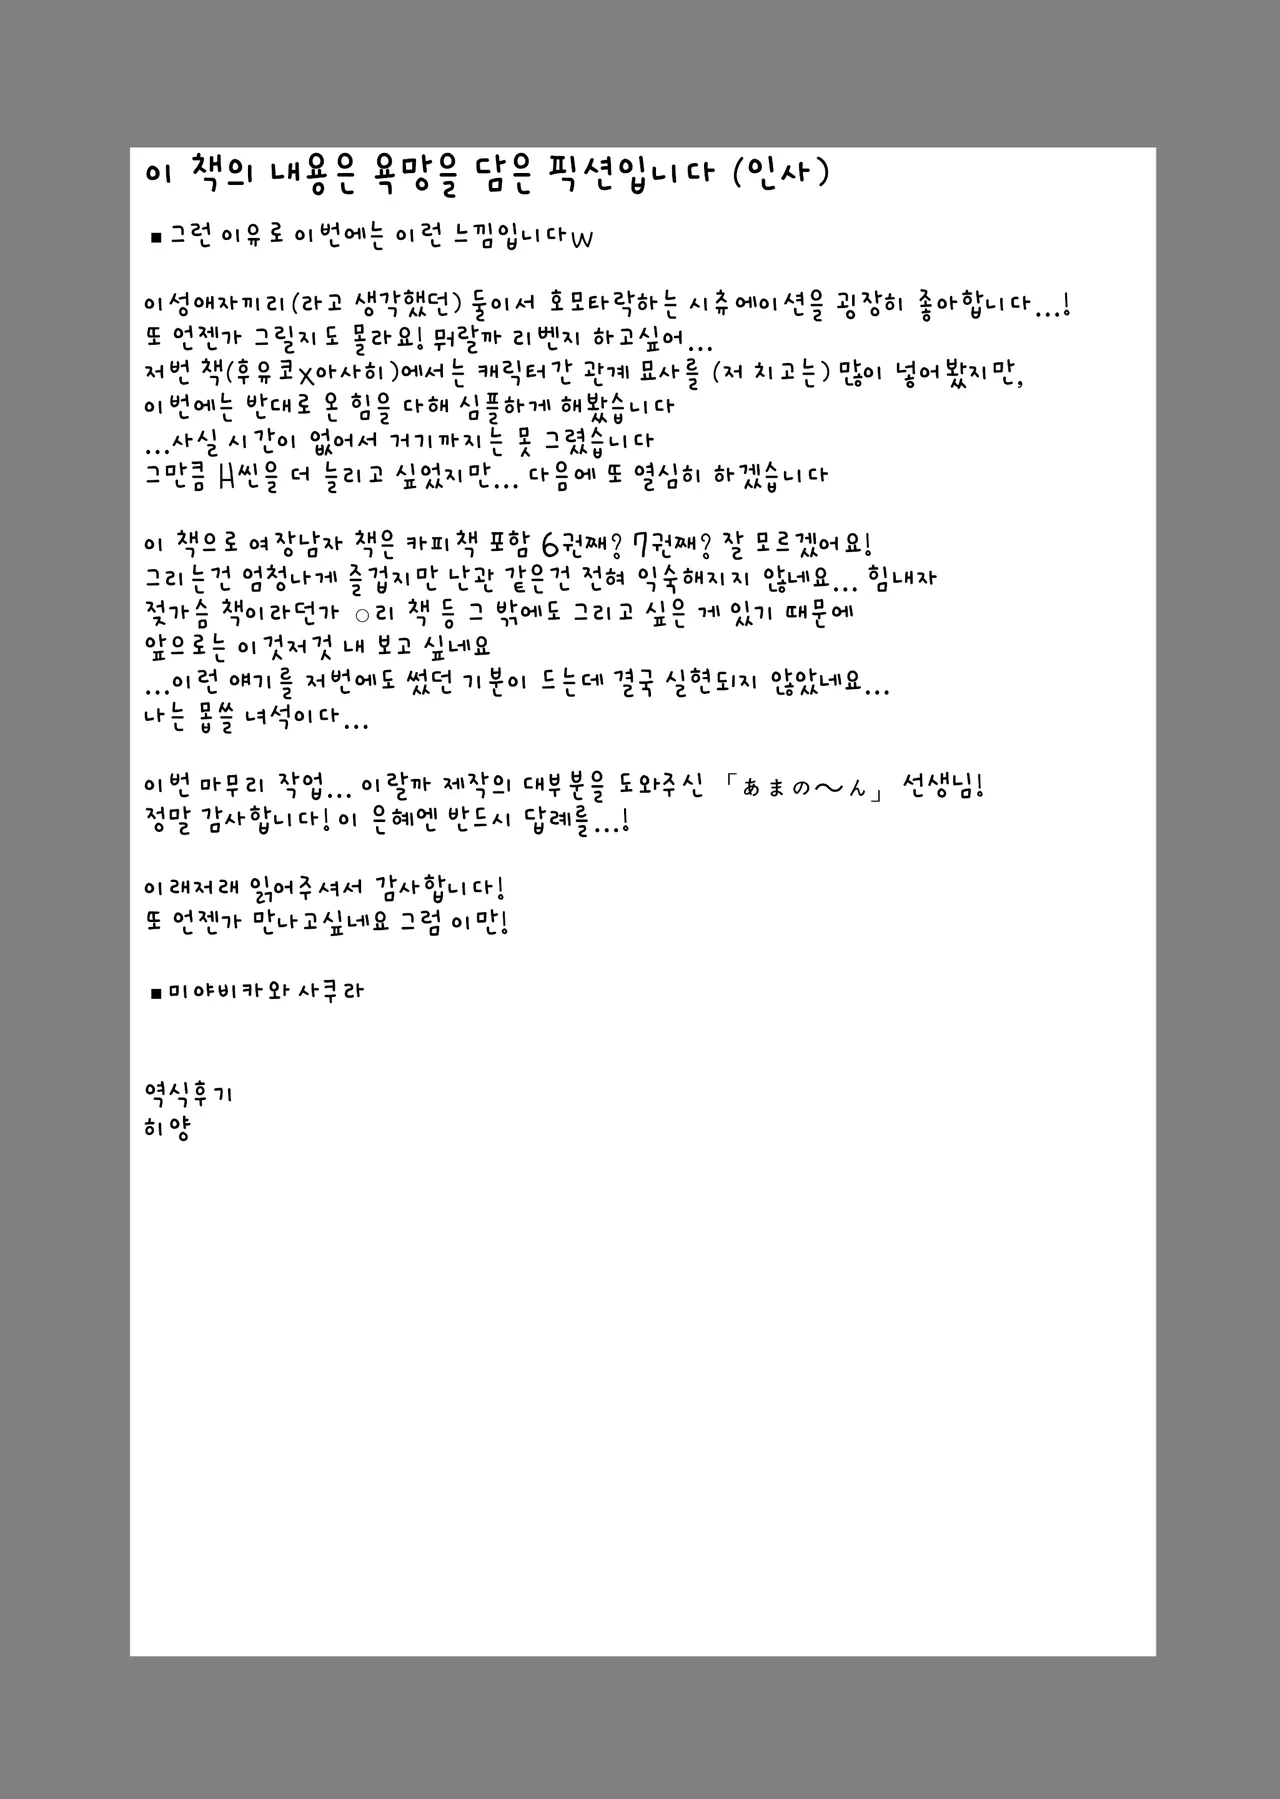 이 책의 내용은 욕망을 담은 픽션입니다 (인사)
■그런 이유로 이번에는 이런 느낌입니다w
이성애자끼리(라고 생각했던) 둘이서 호모타락하는 시츄에이션을 굉장히 좋아합니다...!
또 언젠가 그릴지도 몰라요! 뭐랄까 리벤지 하고싶어...
저번 책(후유코x아사히)에서는 캐릭터간 관계 묘사를 (저 치고는) 많이 넣어봤지만,
이번에는 반대로 온 힘을 다해 심플하게 해봤습니다
...사실 시간이 없어서 거기까지는 못 그렸습니다
그만큼 H씬을 더 늘리고 싶었지만... 다음에 또 열심히 하겠습니다
이 책으로 여장남자 책은 카피책 포함 6권째? 7권째? 잘 모르겠어요!
그리는건 엄청나게 즐겁지만 난관 같은건 전혀 익숙해지지 않네요... 힘내자
젖가슴 책이라던가 ○리 책 등 그 밖에도 그리고 싶은 게 있기 때문에
앞으로는 이것저것 내 보고 싶네요
...이런 얘기를 저번에도 썼던 기분이 드는데 결국 실현되지 않았네요...
나는 몹쓸 녀석이다...
이번 마무리 작업... 이랄까 제작의 대부분을 도와주신 「あまの〜ん」 선생님!
정말 감사합니다! 이 은혜엔 반드시 답례를...!
이래저래 읽어주셔서 감사합니다!
또 언젠가 만나고싶네요 그럼 이만!
■미야비카와 사쿠라
역식후기
히양